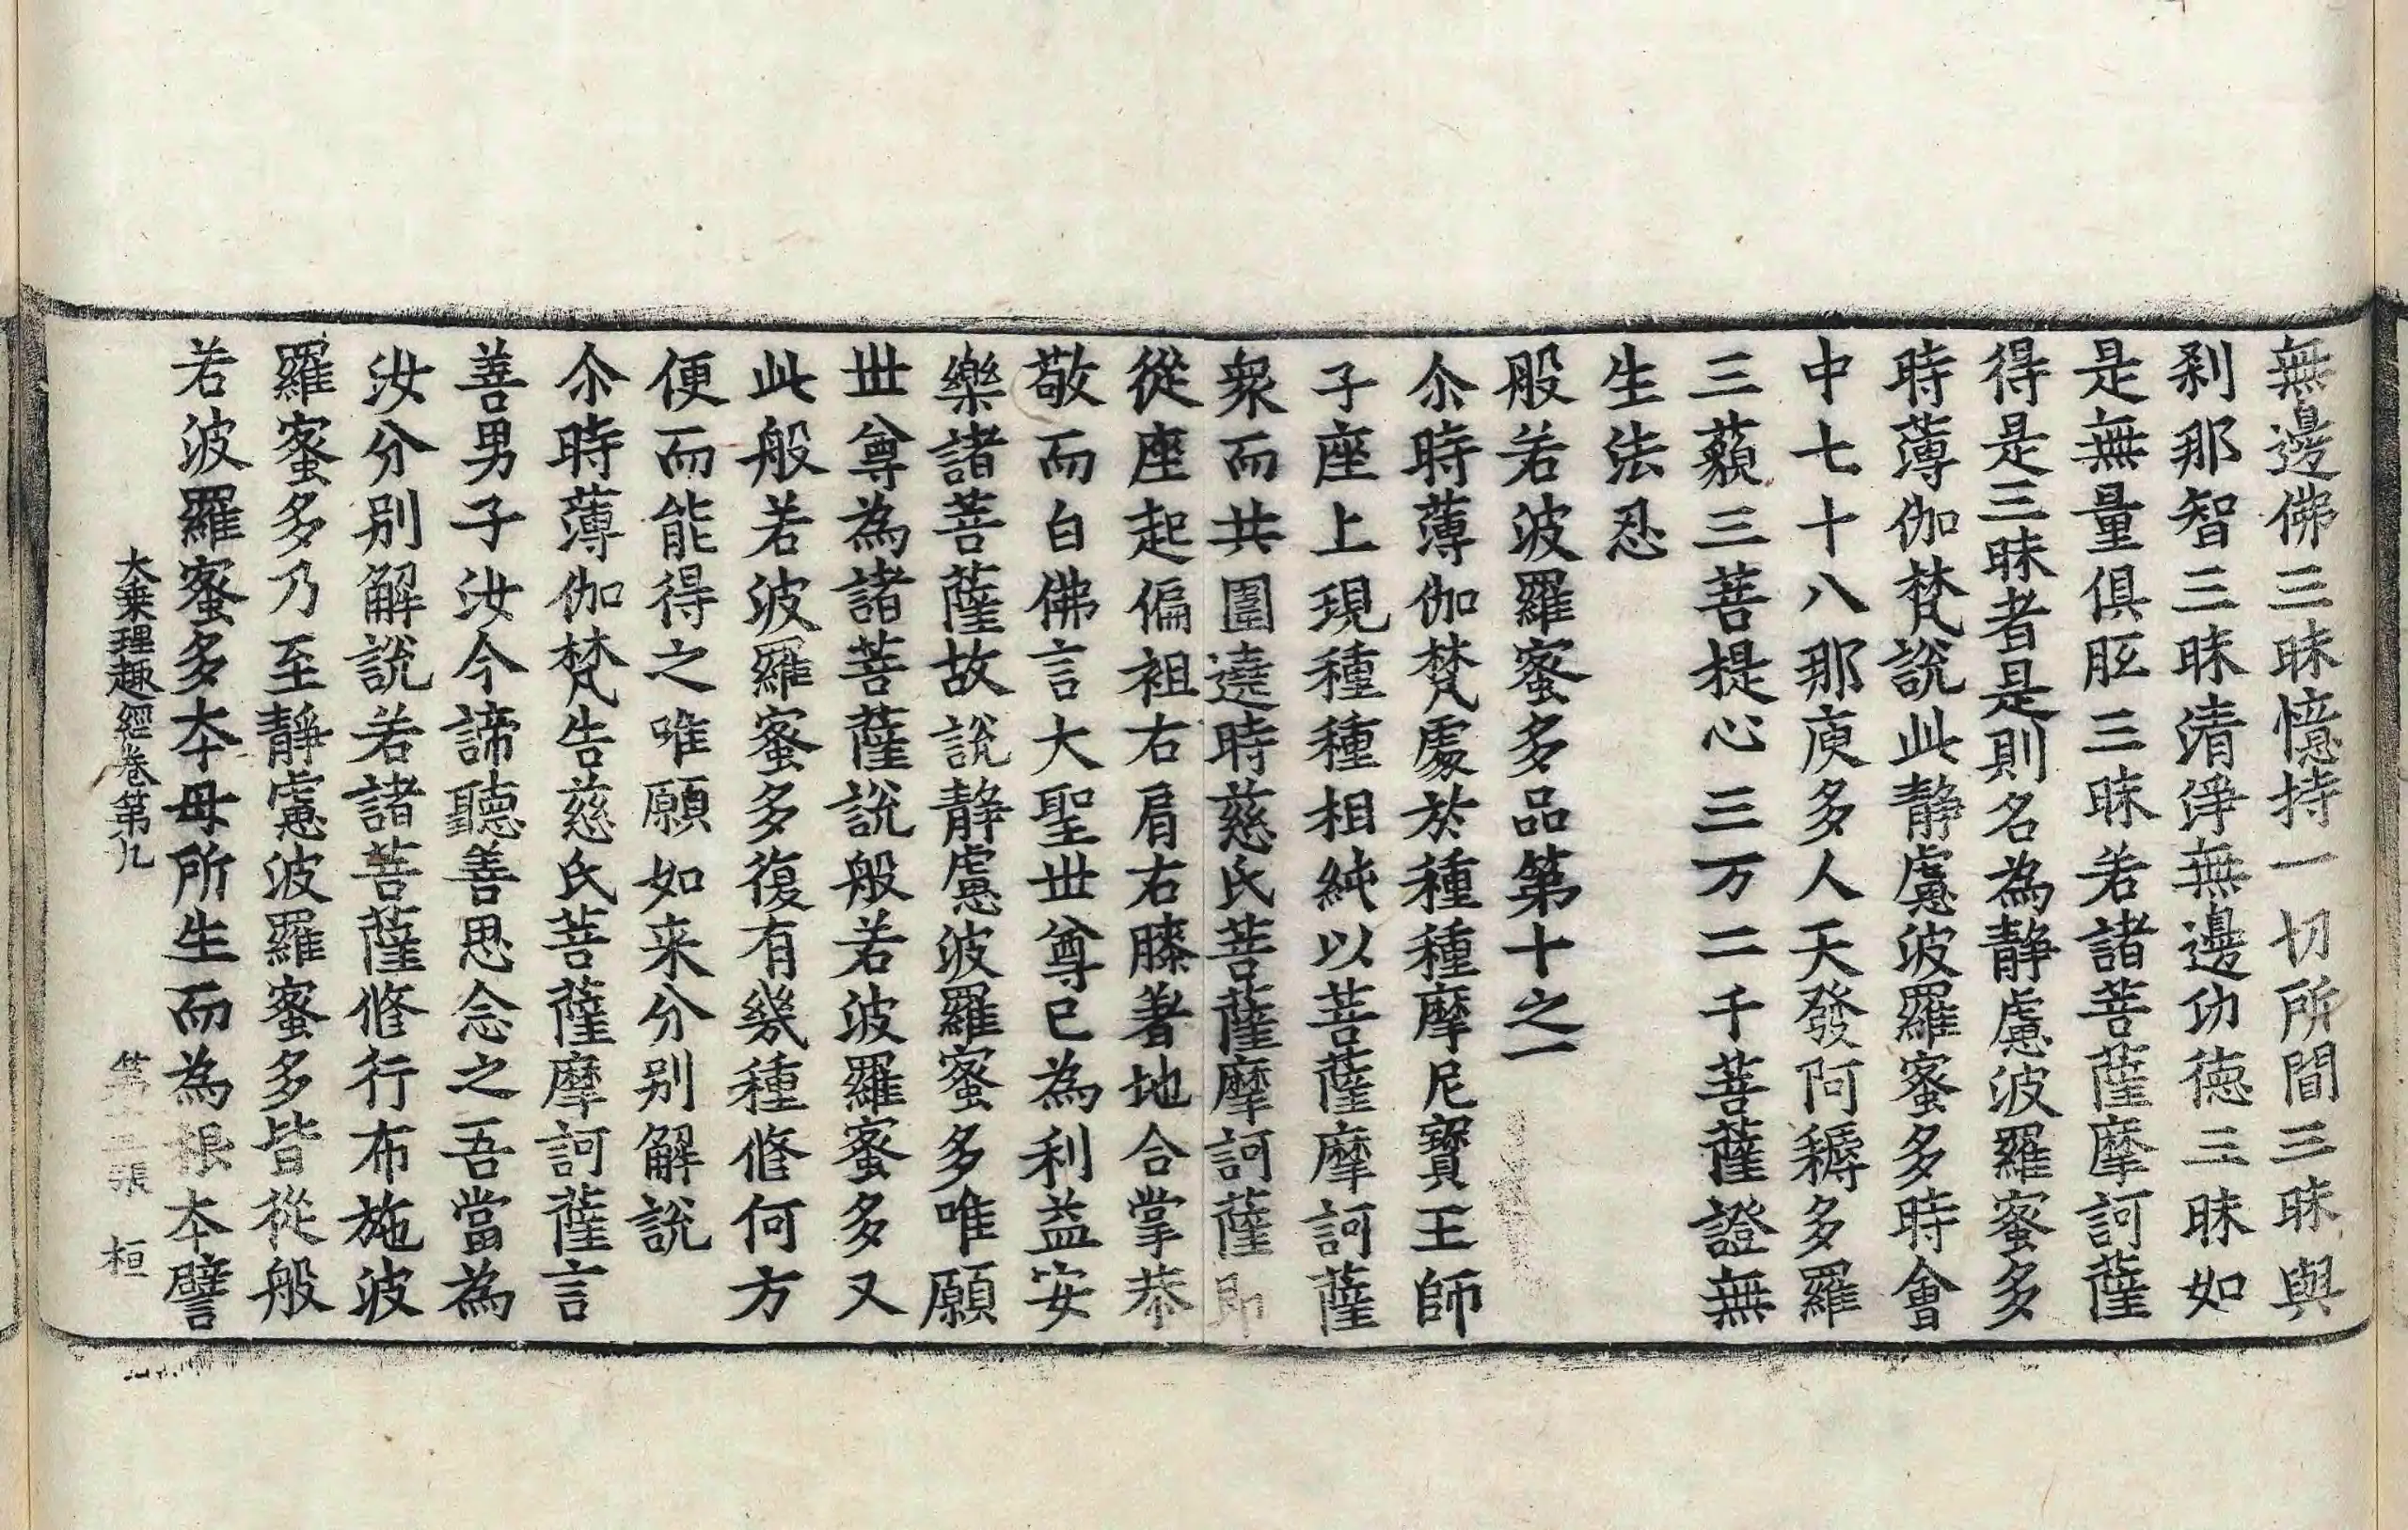 無邊佛三昧憶持一切所聞三昧與
剎那智三昧清淨無邊功德三昧如
是無量俱胝三昧若諸菩薩摩訶薩
得是三昧者是則名為靜慮波羅蜜多
時薄伽梵說此靜慮波羅蜜多時會
中七十八那庾多人天發阿耨多羅
三藐三菩提心三万二千菩薩證無
生法忍
般若波羅蜜多品第十之一
尒時薄伽梵處於種種摩尼寶王師
子座上現種種相純以菩薩摩訶薩
衆而共圍遶時慈氏菩薩摩訶薩即
從座起偏袒右肩右膝著地合掌恭
敬而白佛言大聖世尊已為利益安
樂諸菩薩故說靜慮波羅蜜多唯願
世尊為諸菩薩說般若波羅蜜多又
此般若波羅蜜多復有幾種修何方
便而能得之唯願如来分别解說
尒時薄伽梵告慈氏菩薩摩訶薩言
善男子汝今諦聽善思念之吾當為
汝分别解說若諸菩薩修行布施波
羅蜜多乃至靜慮波羅蜜多皆從般
若波羅蜜多大母所生而為根本譬
大乘理趣經卷第九 第 張 桓